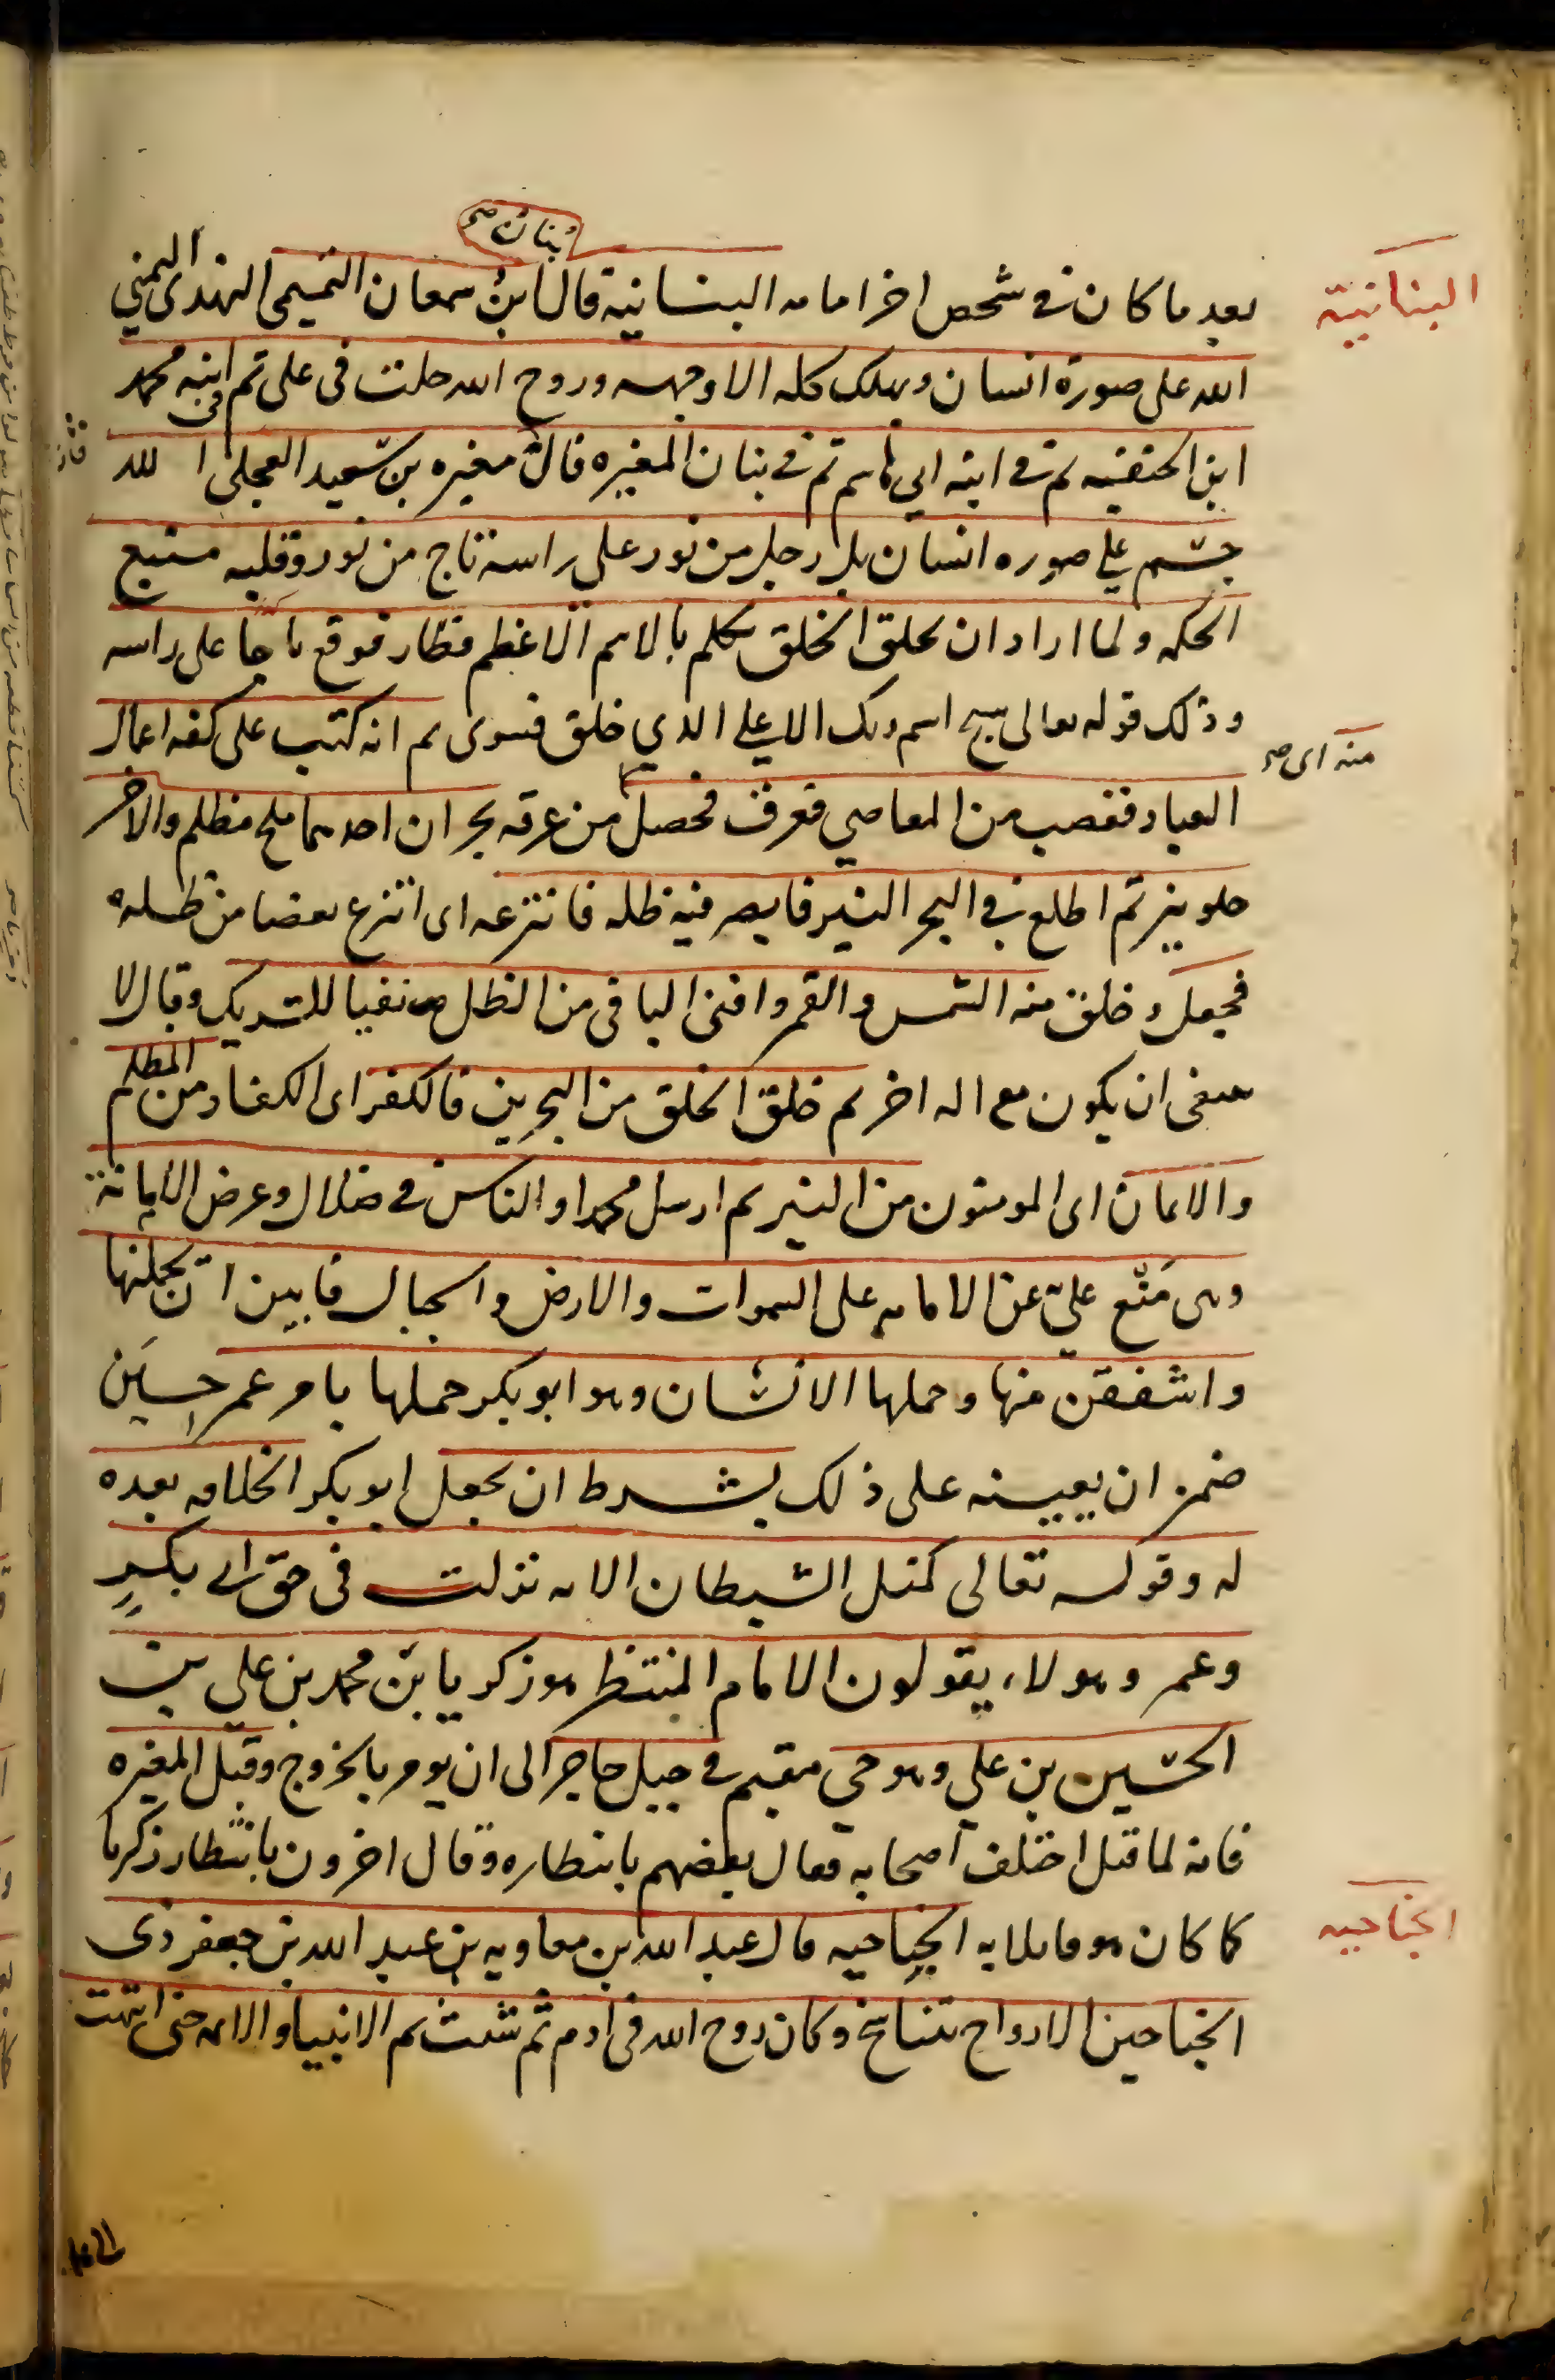 البنانية
بنان صح
بعد ما كان في شخص اخر امامه البنانية قال ابن سمعان التميمي الهندي اليمني
الله على صورة انسان ويهلك كله الا وجهه وروح الله حلت في علي ثم في ابنه محمد
ابن الحنفيه ثم في ابنه ابي هاشم ثم في بنان المغيره قال مغيره بن سعيد العجلي الله
جسم علي صوره انسان بل رجل من نور على راسه تاج من نور وقلبه منبع
الحكمه ولما اراد ان يخلق الخلق تكلم بالاسم الاعظم فطار فوقع تاجا على راسه
وذلك قوله تعالى سبح اسم ربك الاعلي الذي خلق فسوى ثم انه كتب على كفه اعمال
منه اى صح
العباد فغضب من المعاصي فعرق فحصل من عرقه بحران احدهما ملح مظلم والاخر
حلو نير ثم اطلع في البحر النير فابصر فيه ظله فانتزعه اى انتزع بعضا من ظله
فجعل وخلق منه الشمس والقمر وافنى الباقي من الظل نفيا للشريك وقال لا
ينبغي ان يكون مع اله اخر ثم خلق الخلق من البحرين فالكفر اى الكفار من المظلم
والايمان اى المومنون من النير ثم ارسل محمدا والناس في ضلال وعرض الامانة
وهى منع علي عن الامامه على السموات والارض والجبال فابين ان يحملنها
واشفقن منها وحملها الانسان وهو ابو بكر حملها بامر عمر حين
ضمن ان يعينه على ذلك بشرط ان يجعل ابو بكر الخلافه بعده
له وقوله تعالى كمثل الشيطان الايه نزلت في حق ابي بكر
وعمر وهولاء يقولون الامام المنتظر هو زكريا بن محمد بن علي بن
الحسين بن علي وهو حي مقيم في جبل حاجر الى ان يومر بالخروج وقيل المغيره
فانه لما قتل اختلف اصحابه فقال بعضهم بانتظاره وقال اخرون بانتظار زكريا
الجناحيه
كما كان هو قايلا به الجناحيه قال عبد الله بن معاويه بن عبد الله بن جعفر ذى
الجناحين الارواح تتناسخ وكان روح الله في ادم ثم شيث ثم الانبيا والايمه حتى انتهت